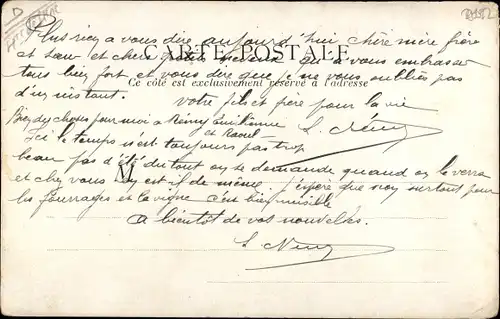 Plus rien a vous dire aujourd'hui chère mère frère
et sœur et chers petits neveux qu'a vous embrasser
CARTE POSTALE
tous bien fort et vous dire que je ne vous oublies pas
Ce côté est exclusivement réservé à l'adresse
d'un instant.
Votre fils et frère pour la vie
Bien des choses pour moi a Rémy Emilienne
et Raoul
Ici le temps n'est toujours pas trop
beau pas d'été du tout on se demande quand on le verra
M
et chez vous en est il de même. J'espère que non surtout pour
les fourrages et la vigne c'est bien nuisible
A bientôt de vos nouvelles.